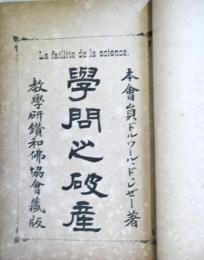 La faillite de la science.
本會員ドルワール・ド・レゼー著
學問之破産
教學研鑽和佛協會藏版